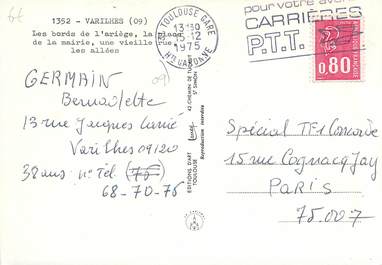 6€
1352 - VARILHES (09)
Les bords de l'ariège, la place
de la mairie, une vieille rue
les allées
31 TOULOUSE GARE
13H30
15-12
1975
Hte GARONNE
pour votre avenir
CARRIÈRES
P.T.T.
0,80
091
GERMAIN
Bernadette
13 rue Jacques
Varilhes 09120
38 ans n° Tel (75)
68-70-75
EDITIONS D'ART
TOULOUSE
Reproduction interdite
42, CHEMIN DE
ST SIMON
Spécial TF1 Concorde
15 rue Cognacq Jay
PARIS
75.007